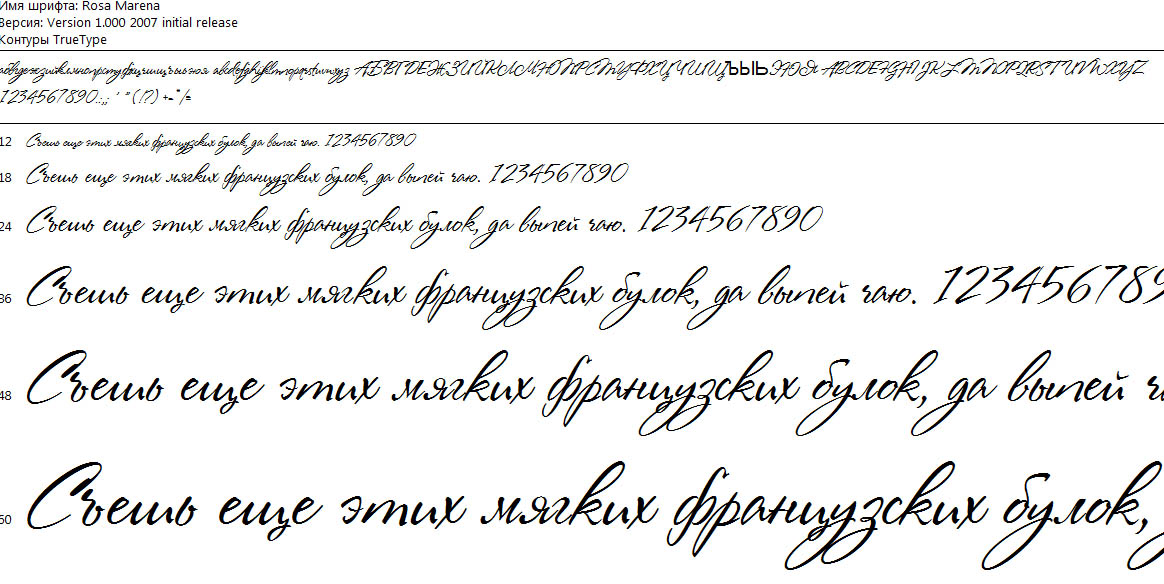 Имя шрифта: Rosa Marena
Версия: Version 1.000 2007 initial release
Контуры TrueType
абвгдежзийклмнопрстуфхцчшщъыьэюя abcdefghijklmnopqrstuvwxyz АБВГДЕЖЗИЙКЛМНОПРСТУФХЦЧШЩЪЫЬЭЮЯ ABCDEFGHIJKLMNOPQRSTUVWXYZ
1234567890.:,; ' " (!?) +-*/=
12 Съешь еще этих мягких французских булок, да выпей чаю. 1234567890
18 Съешь еще этих мягких французских булок, да выпей чаю. 1234567890
24 Съешь еще этих мягких французских булок, да выпей чаю. 1234567890
36 Съешь еще этих мягких французских булок, да выпей чаю. 123456789
48 Съешь еще этих мягких французских булок, да выпей ч
60 Съешь еще этих мягких французских булок,